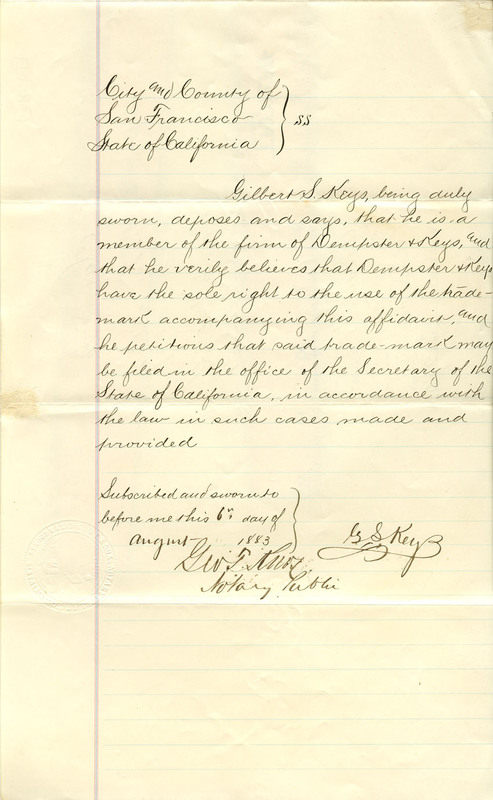 City and County of
San Francisco
State of California } SS
Gilbert S. Keys, being duly
sworn, deposes and says, that he is a
member of the firm of Dempster & Keys, and
that he verily believes that Dempster & Keys
have the sole right to the use of the trade-
mark accompanying this affidavit, and
he petitions that said trade-mark may
be filed in the office of the Secretary of the
State of California, in accordance with
the law in such cases made and
provided
Subscribed and sworn to
before me this 6th day of
August 1883
G S Keys
Geo. T. Knox
Notary Public